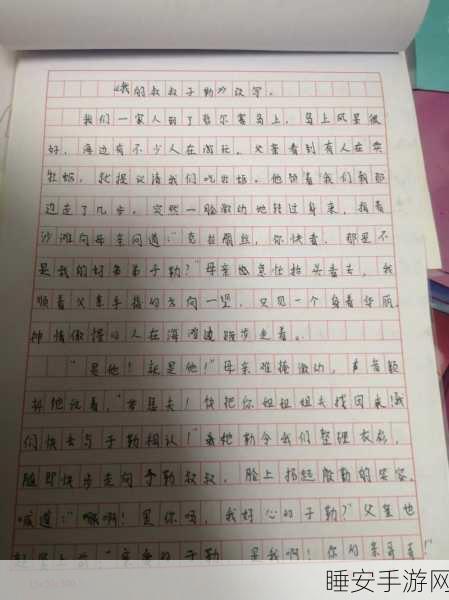 《我的叔叔于勒》改写。
我们一家人到了哲尔赛岛上，岛上风景很
好，海边有不少人在游玩。父亲看到有人在卖
牡蛎，就提议请我们吃牡蛎。他领着我们朝那
边走了几步，突然一脸激动地转过身来，指着
沙滩向母亲问道：“克拉丽丝，你快看，那是不
是我的好兄弟于勒？”母亲急忙抬头看去，我
顺着父亲手指的方向一望，只见一个身着华丽，
神情傲慢的人在海滩边踱步走着。
“是他！就是他！”母亲难掩激动，声音颤
抖他说着，“若瑟夫！快把你姐姐姐夫找回来！我
们快去与于勒相认！”她勒令我们整理衣衫，
随即快步走向于勒叔叔，脸上扬起殷勤的笑容，
喊道：“啊！是你吗，我好心的于勒？”父亲也
赶紧上前：“亲爱的于勒，是我啊！你的亲哥哥！”
15×20=300
睡安手游网